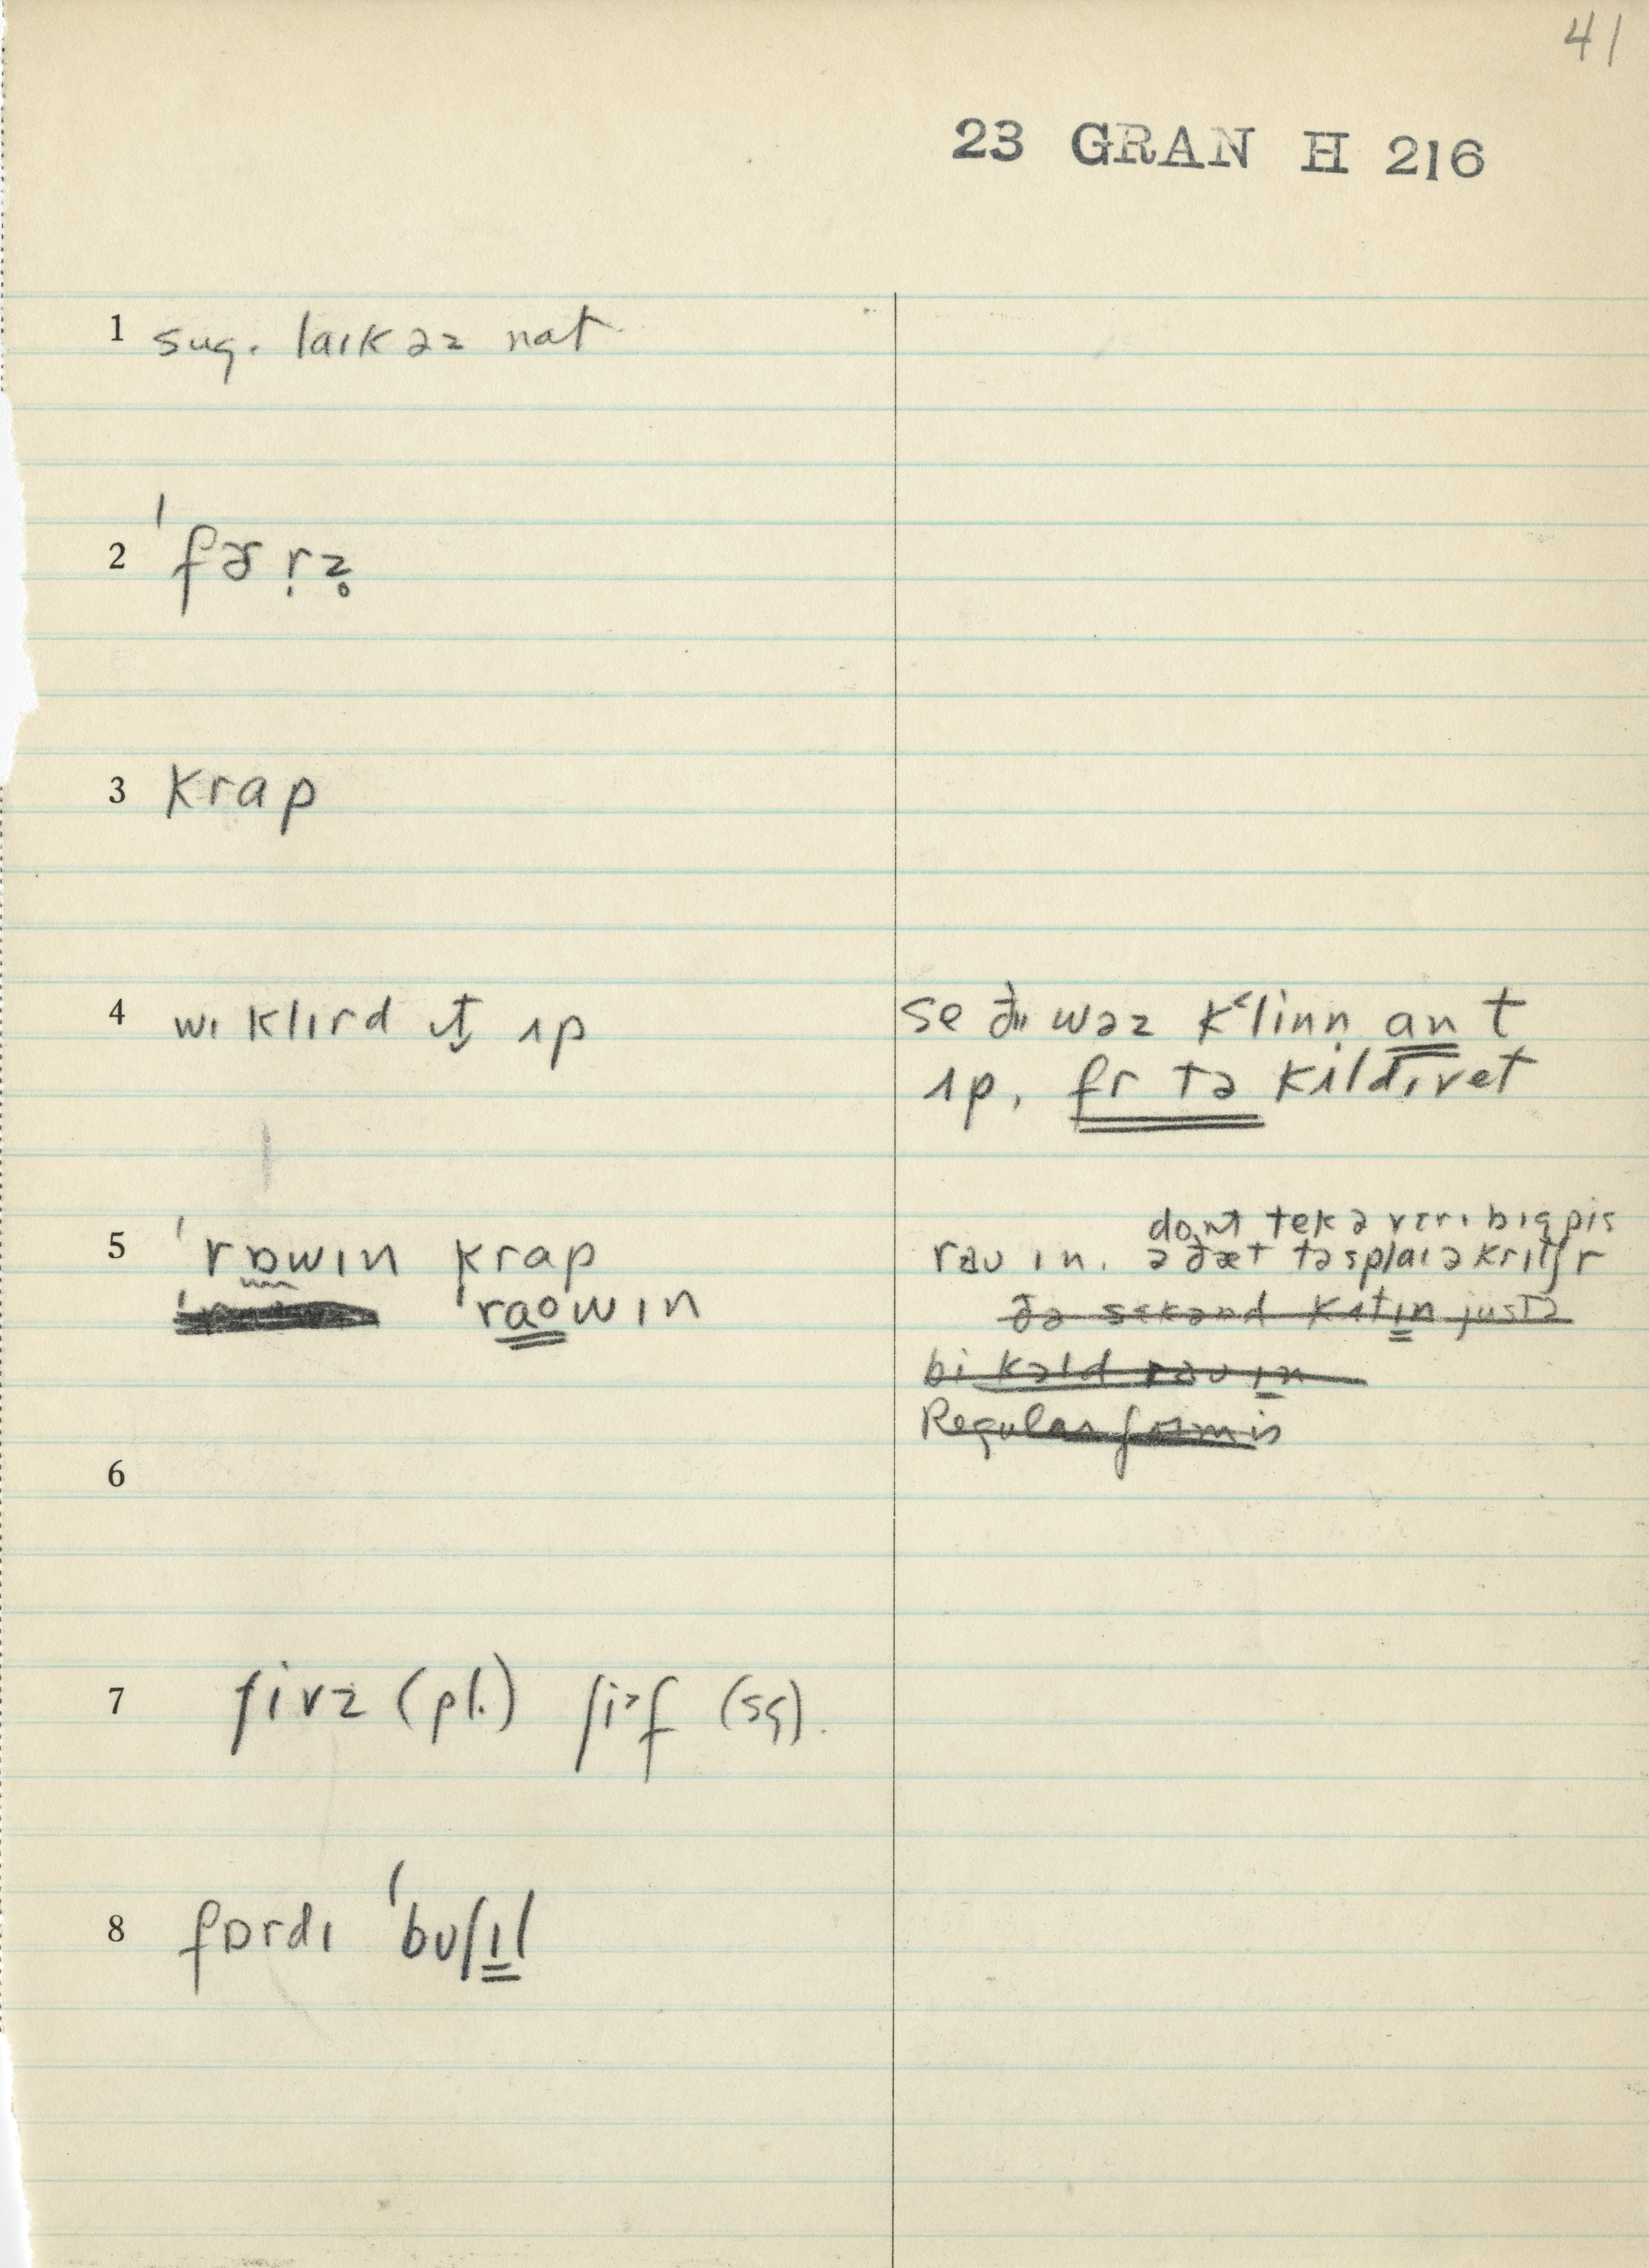 41
23 GRAN H 216
1 sug. laɪk əz nat
2 ˈfɚr̩z̥
3 krap
4 wɪ klɪrd ɪt̬ ʌp
se ðɪ wəz k˂linn̩ an t
ʌp, fr tə kʌltɪvet
5 ˈrɒwɪn krap
ˈraowɪn
dont tek ə vɛrɪ bɪg pis
rau ɪn. ə ðæt tə splaɪ ə kritʃr
ðə sɛkənd kʌtɪn justə
bi kəld rau ɪn
Regular form is
6
7 ʃivz (pl.) ʃi˃f (sg).
8 fɒrdɪ ˈbuʃɪl